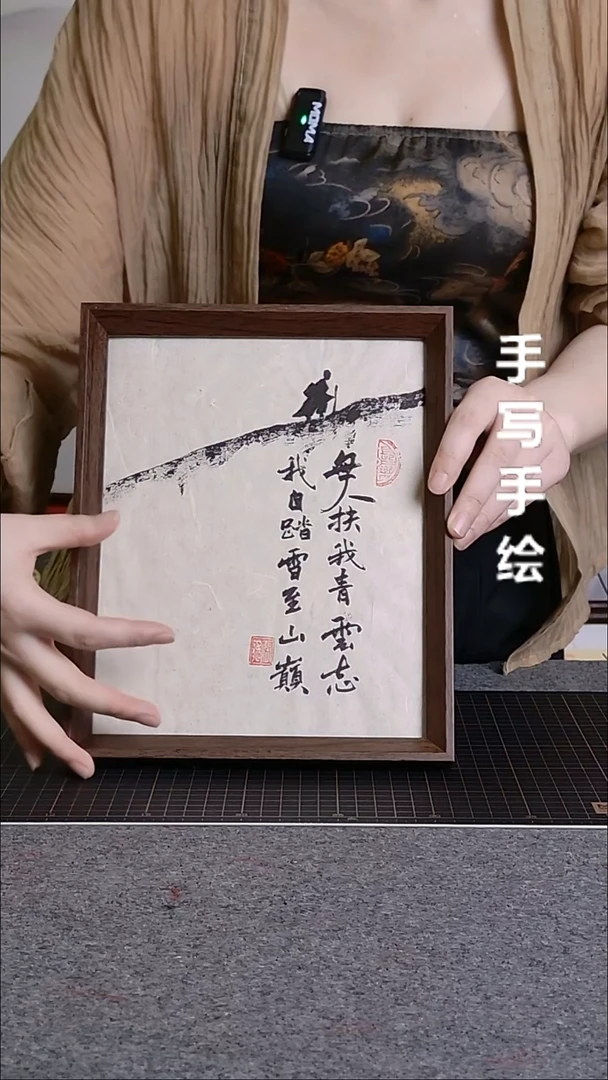 MOMA
手写手绘
無人扶我青雲志
我自踏雪至山巔